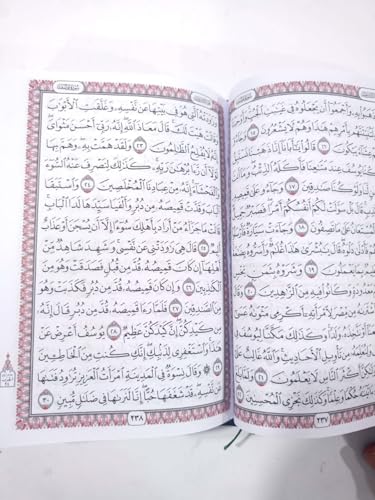 بِهِۦ وَأَجْمَعُوٓا۟ أَن يَجْعَلُوهُ فِى غَيَـٰبَتِ
بِأَمْرِهِمْ هَـٰذَا وَهُمْ لَا يَشْعُرُونَ ١٥
١٦ قَالُوا۟ يَـٰٓأَبَانَآ إِنَّا ذَهَبْنَا نَسْتَبِقُ
يُوسُفَ عِندَ مَتَـٰعِنَا فَأَكَلَهُ ٱلذِّئْبُ وَمَآ
وَلَوْ كُنَّا صَـٰدِقِينَ ١٧ وَجَآءُو عَلَىٰ قَمِيصِهِۦ
قَالَ بَلْ سَوَّلَتْ لَكُمْ أَنفُسُكُمْ أَمْرًا فَصَبْرٌ جَمِيلٌ
عَلَىٰ مَا تَصِفُونَ ١٨ وَجَآءَتْ سَيَّارَةٌ
دَلْوَهُۥ قَالَ يَـٰبُشْرَىٰ هَـٰذَا غُلَـٰمٌ وَأَسَرُّوهُ
بِمَا يَعْمَلُونَ ١٩ وَشَرَوْهُ بِثَمَنٍۭ
وَكَانُوا۟ فِيهِ مِنَ ٱلزَّٰهِدِينَ ٢٠
وَكَذَٰلِكَ مَكَّنَّا لِيُوسُفَ
وَلِنُعَلِّمَهُۥ مِن تَأْوِيلِ ٱلْأَحَادِيثِ وَٱللَّهُ غَالِبٌ
وَلَـٰكِنَّ أَكْثَرَ ٱلنَّاسِ لَا يَعْلَمُونَ ٢١
حُكْمًا وَعِلْمًا وَكَذَٰلِكَ نَجْزِى ٱلْمُحْسِنِينَ ٢٢
٢٣٧
وَرَٰوَدَتْهُ ٱلَّتِى هُوَ فِى بَيْتِهَا عَن نَّفْسِهِۦ وَغَلَّقَتِ ٱلْأَبْوَٰبَ
وَقَالَتْ هَيْتَ لَكَ قَالَ مَعَاذَ ٱللَّهِ إِنَّهُۥ رَبِّىٓ أَحْسَنَ مَثْوَاىَ
إِنَّهُۥ لَا يُفْلِحُ ٱلظَّـٰلِمُونَ ٢٣ وَلَقَدْ هَمَّتْ بِهِۦ وَهَمَّ بِهَا
لَوْلَآ أَن رَّءَا بُرْهَـٰنَ رَبِّهِۦ كَذَٰلِكَ لِنَصْرِفَ عَنْهُ ٱلسُّوٓءَ
وَٱلْفَحْشَآءَ إِنَّهُۥ مِنْ عِبَادِنَا ٱلْمُخْلَصِينَ ٢٤ وَٱسْتَبَقَا
ٱلْبَابَ وَقَدَّتْ قَمِيصَهُۥ مِن دُبُرٍ وَأَلْفَيَا سَيِّدَهَا لَدَا ٱلْبَابِ
قَالَتْ مَا جَزَآءُ مَنْ أَرَادَ بِأَهْلِكَ سُوٓءًا إِلَّآ أَن يُسْجَنَ أَوْ عَذَابٌ
أَلِيمٌ ٢٥ قَالَ هِىَ رَٰوَدَتْنِى عَن نَّفْسِى وَشَهِدَ شَاهِدٌ مِّنْ
أَهْلِهَآ إِن كَانَ قَمِيصُهُۥ قُدَّ مِن قُبُلٍ فَصَدَقَتْ وَهُوَ مِنَ
ٱلْكَـٰذِبِينَ ٢٦ وَإِن كَانَ قَمِيصُهُۥ قُدَّ مِن دُبُرٍ فَكَذَبَتْ وَهُوَ
مِنَ ٱلصَّـٰدِقِينَ ٢٧ فَلَمَّا رَءَا قَمِيصَهُۥ قُدَّ مِن دُبُرٍ قَالَ إِنَّهُۥ
مِن كَيْدِكُنَّ إِنَّ كَيْدَكُنَّ عَظِيمٌ ٢٨ يُوسُفُ أَعْرِضْ عَنْ
هَـٰذَا وَٱسْتَغْفِرِى لِذَنۢبِكِ إِنَّكِ كُنتِ مِنَ ٱلْخَاطِـِٔينَ
٢٩ وَقَالَ نِسْوَةٌ فِى ٱلْمَدِينَةِ ٱمْرَأَتُ ٱلْعَزِيزِ تُرَٰوِدُ فَتَىٰهَا
عَن نَّفْسِهِۦ قَدْ شَغَفَهَا حُبًّا إِنَّا لَنَرَىٰهَا فِى ضَلَـٰلٍ مُّبِينٍ ٣٠
٢٣٨